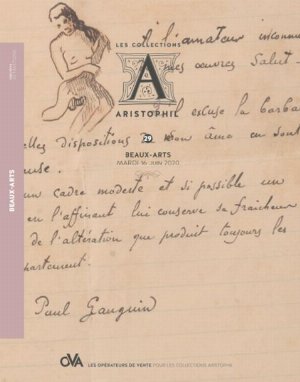 A l'amateur inconnu
LES COLLECTIONS
mes œuvres Salut -
A
ARISTOPHIL
il excuse la barba
elles dispositions
29
mon âme
BEAUX-ARTS
MARDI 16 JUIN 2020
BEAUX-ARTS
un cadre modeste et si possible un
en l'affinent lui conserve sa fraîcheur
de l'altération que produit toujours les
partement.
Paul Gauguin
OVA LES OPÉRATEURS DE VENTE POUR LES COLLECTIONS ARISTOPHIL